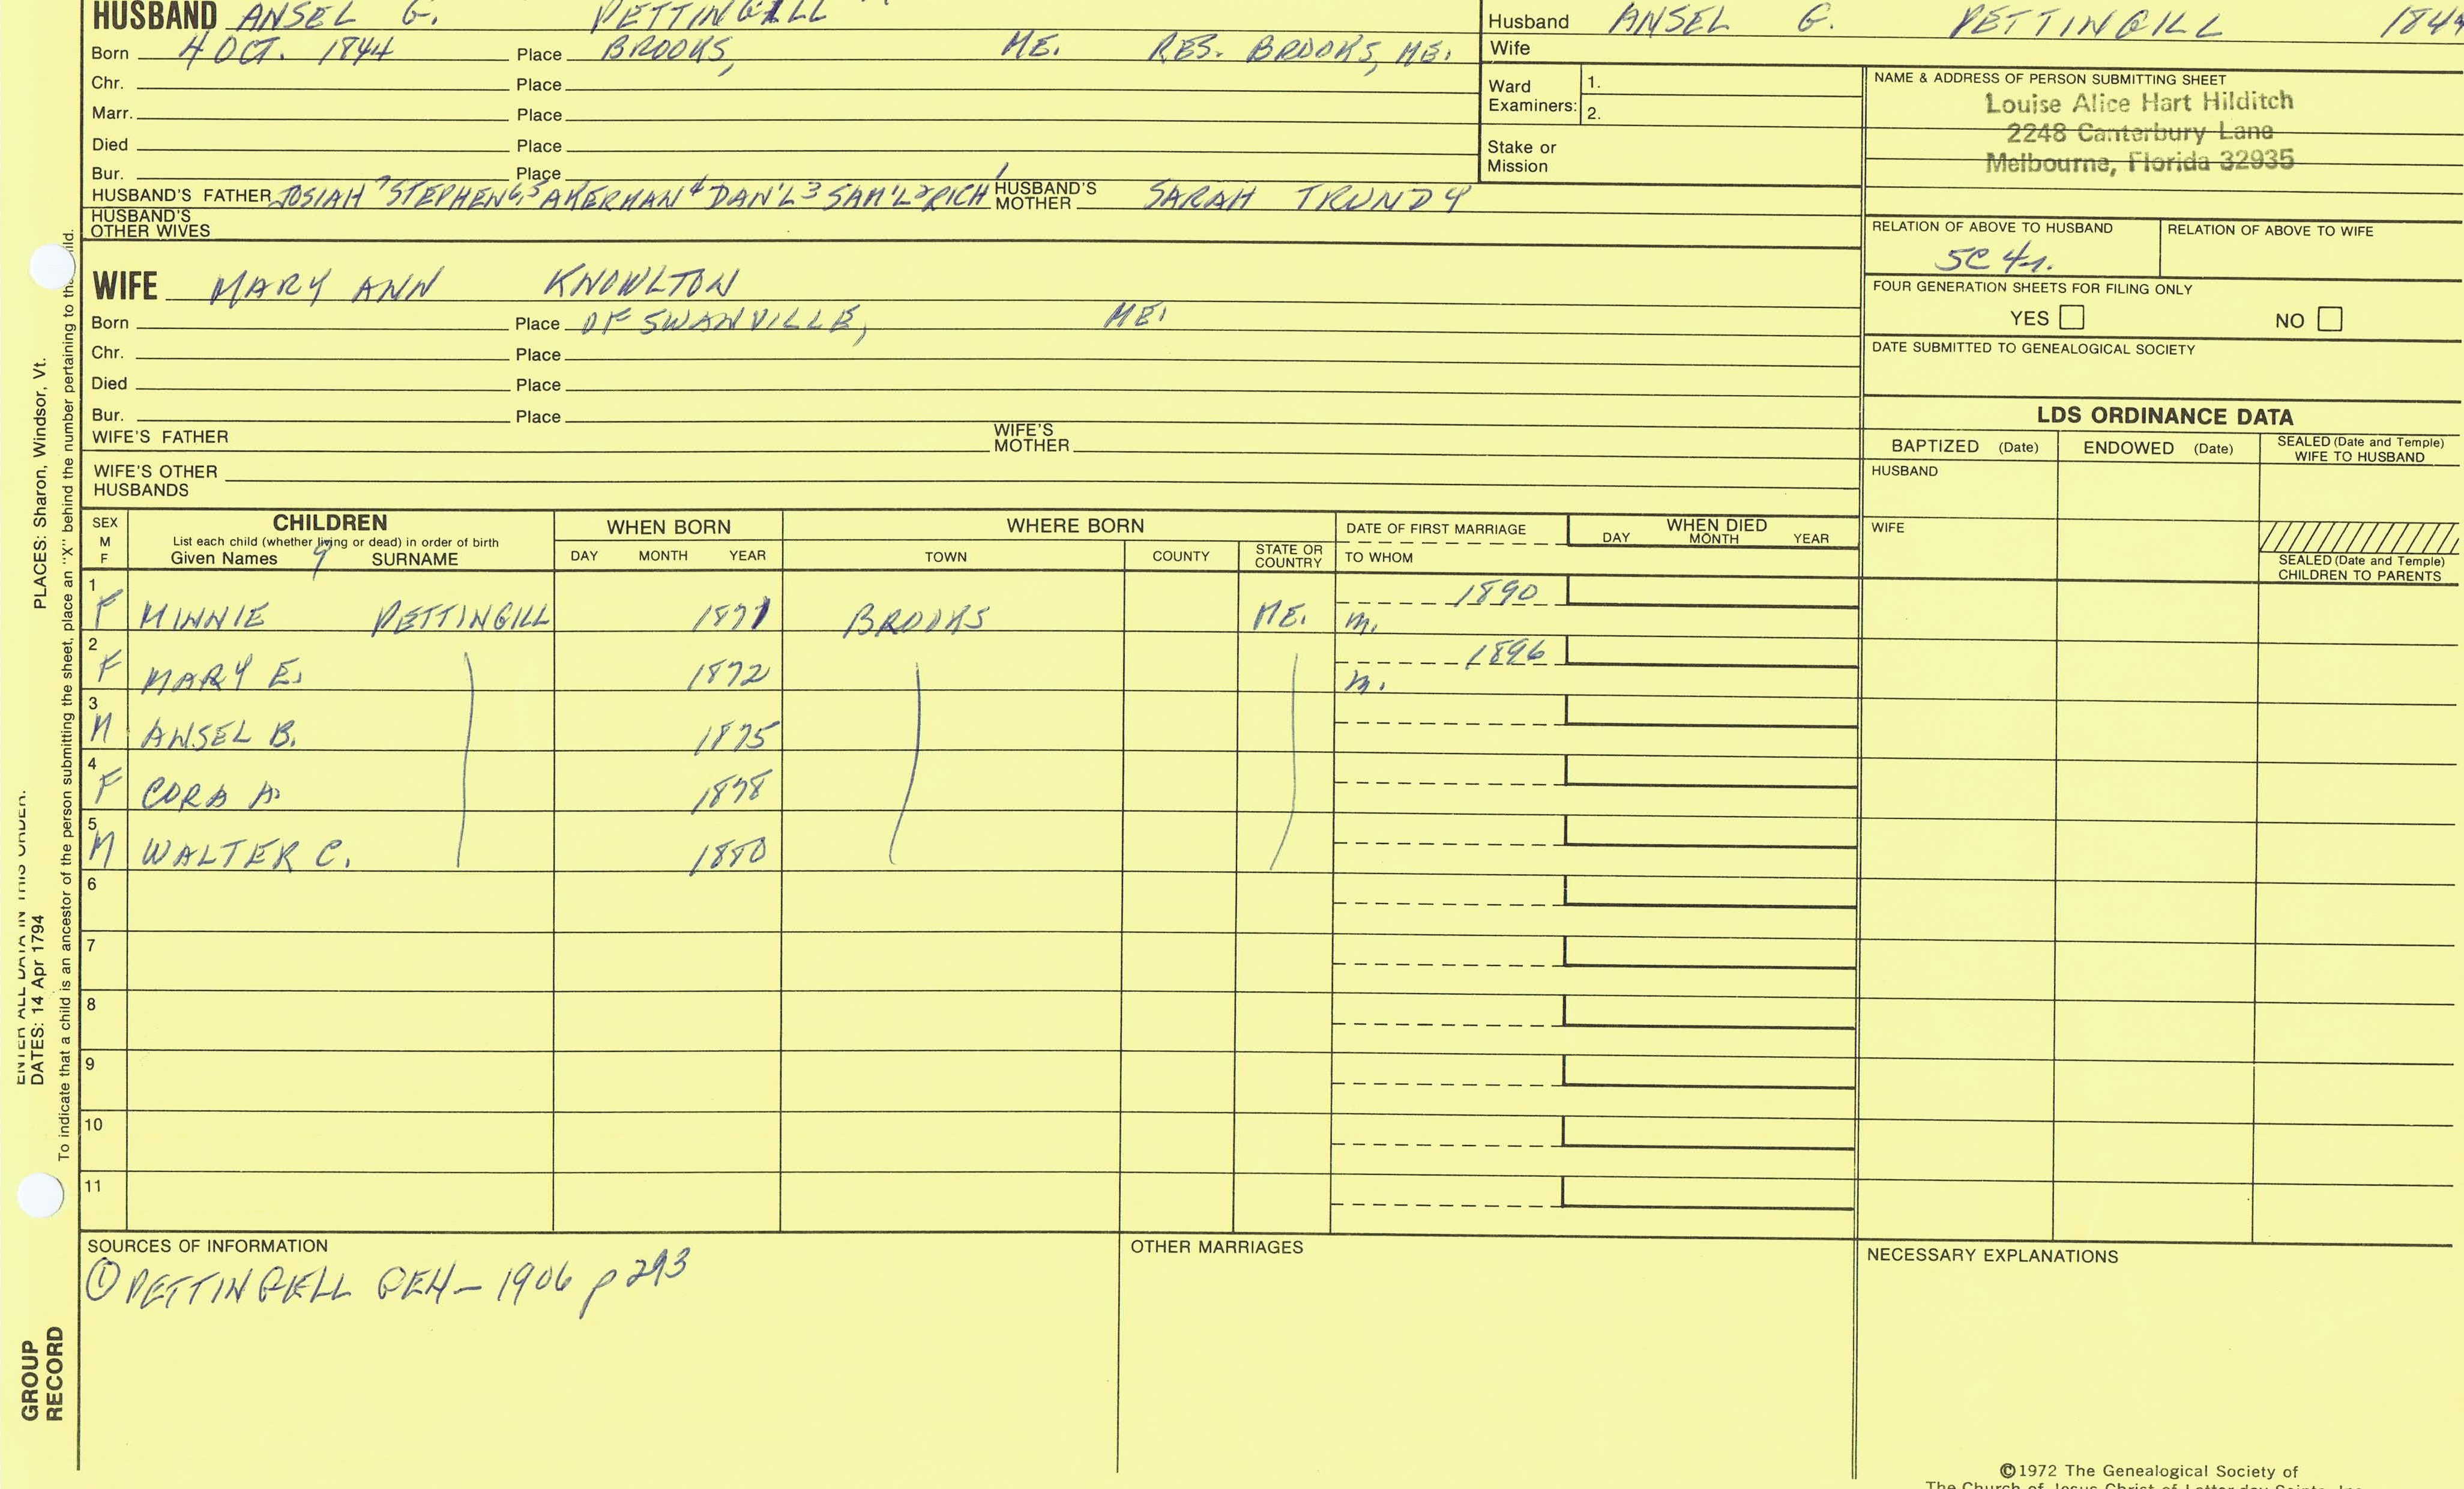 HUSBAND ANSEL G. PETTINGILL
Born 4 OCT. 1844 Place BROOKS, ME. RES. BROOKS, ME.
Chr. Place
Marr. Place
Died Place
Bur. Place
HUSBAND'S FATHER JOSIAH 7 STEPHEN 6,5 AKERMAN 4 DAN'L 3 SAM'L 2 RICH 1 HUSBAND'S MOTHER SARAH TRUNDY
HUSBAND'S
OTHER WIVES
WIFE MARY ANN KNOWLTON
Born Place OF SWANVILLE, ME.
Chr. Place
Died Place
Bur. Place
WIFE'S FATHER WIFE'S MOTHER
WIFE'S OTHER
HUSBANDS
Husband ANSEL G. PETTINGILL 1844
Wife
Ward
Examiners: 1.
2.
Stake or
Mission
NAME & ADDRESS OF PERSON SUBMITTING SHEET
Louise Alice Hart Hilditch
2248 Canterbury Lane
Melbourne, Florida 32935
RELATION OF ABOVE TO HUSBAND RELATION OF ABOVE TO WIFE
5C 4r.
FOUR GENERATION SHEETS FOR FILING ONLY
YES NO
DATE SUBMITTED TO GENEALOGICAL SOCIETY
LDS ORDINANCE DATA
BAPTIZED (Date) ENDOWED (Date) SEALED (Date and Temple)
WIFE TO HUSBAND
HUSBAND
WIFE
SEALED (Date and Temple)
CHILDREN TO PARENTS
SEX
M
F
CHILDREN
List each child (whether living or dead) in order of birth
Given Names 9 SURNAME
WHEN BORN
DAY MONTH YEAR
WHERE BORN
TOWN COUNTY STATE OR COUNTRY
DATE OF FIRST MARRIAGE
TO WHOM
WHEN DIED
DAY MONTH YEAR
1 F MINNIE PETTINGILL 1871 BROOKS ME. 1890
m.
2 F MARY E. 1872 1896
m.
3 M ANSEL B. 1875
4 F CORA A. 1878
5 M WALTER C. 1880
6
7
8
9
10
11
SOURCES OF INFORMATION
① PETTINGELL GEN- 1906 p 293
OTHER MARRIAGES
NECESSARY EXPLANATIONS
©1972 The Genealogical Society of
The Church of Jesus Christ of Latter-day Saints, Inc.
ENTER ALL DATA IN THIS ORDER:
DATES: 14 Apr 1794
PLACES: Sharon, Windsor, Vt.
To indicate that a child is an ancestor of the person submitting the sheet, place an "X" behind the number pertaining to the child.
GROUP
RECORD